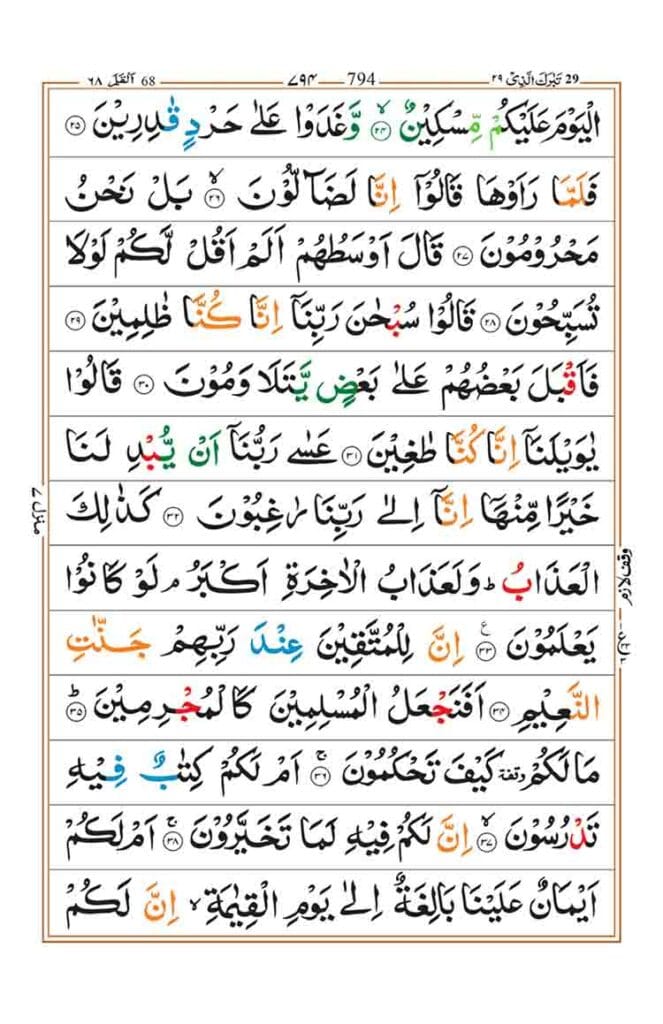 ٦٨ اَلْقَلَم 68 ٧٩۴ 794 تَبٰرَكَ الَّذِىْ ٢٩ 29
الْيَوْمَ عَلَيْكُمْ مِّسْكِيْنٌ ۙ‏﴿۲۴﴾ وَّغَدَوْا عَلٰى حَرْدٍ قٰدِرِيْنَ ﴿۲۵﴾
فَلَمَّا رَاَوْهَا قَالُوْۤا اِنَّا لَضَآلُّوْنَ ۙ﴿۲۶﴾ بَلْ نَحْنُ
مَحْرُوْمُوْنَ ﴿۲۷﴾ قَالَ اَوْسَطُهُمْ اَلَمْ اَقُلْ لَّكُمْ لَوْلَا
تُسَبِّحُوْنَ ﴿۲۸﴾ قَالُوْا سُبْحٰنَ رَبِّنَاۤ اِنَّا كُنَّا ظٰلِمِيْنَ ﴿۲۹﴾
فَاَقْبَلَ بَعْضُهُمْ عَلٰى بَعْضٍ يَّتَلَاوَمُوْنَ ﴿۳۰﴾ قَالُوْا
يٰوَيْلَنَاۤ اِنَّا كُنَّا طٰغِيْنَ ﴿۳۱﴾ عَسٰى رَبُّنَاۤ اَنْ يُّبْدِلَنَا
خَيْرًا مِّنْهَاۤ اِنَّاۤ اِلٰى رَبِّنَا رٰغِبُوْنَ ﴿۳۲﴾ كَذٰلِكَ
منزل ٧
الْعَذَابُ ؕ وَلَعَذَابُ الْاٰخِرَةِ اَكْبَرُ ۘ لَوْ كَانُوْا
وقف لازم
يَعْلَمُوْنَ ﴿۳۳﴾ ع اِنَّ لِلْمُتَّقِيْنَ عِنْدَ رَبِّهِمْ جَنّٰتِ
النَّعِيْمِ ﴿۳۴﴾ اَفَنَجْعَلُ الْمُسْلِمِيْنَ كَالْمُجْرِمِيْنَ ؕ﴿۳۵﴾
مَا لَكُمْ وقفة كَيْفَ تَحْكُمُوْنَ ۚ﴿۳۶﴾ اَمْ لَكُمْ كِتٰبٌ فِيْهِ
تَدْرُسُوْنَ ۙ﴿۳۷﴾ اِنَّ لَكُمْ فِيْهِ لَمَا تَخَيَّرُوْنَ ۚ﴿۳۸﴾ اَمْ لَكُمْ
اَيْمَانٌ عَلَيْنَا بَالِغَةٌ اِلٰى يَوْمِ الْقِيٰمَةِ ۙ اِنَّ لَكُمْ